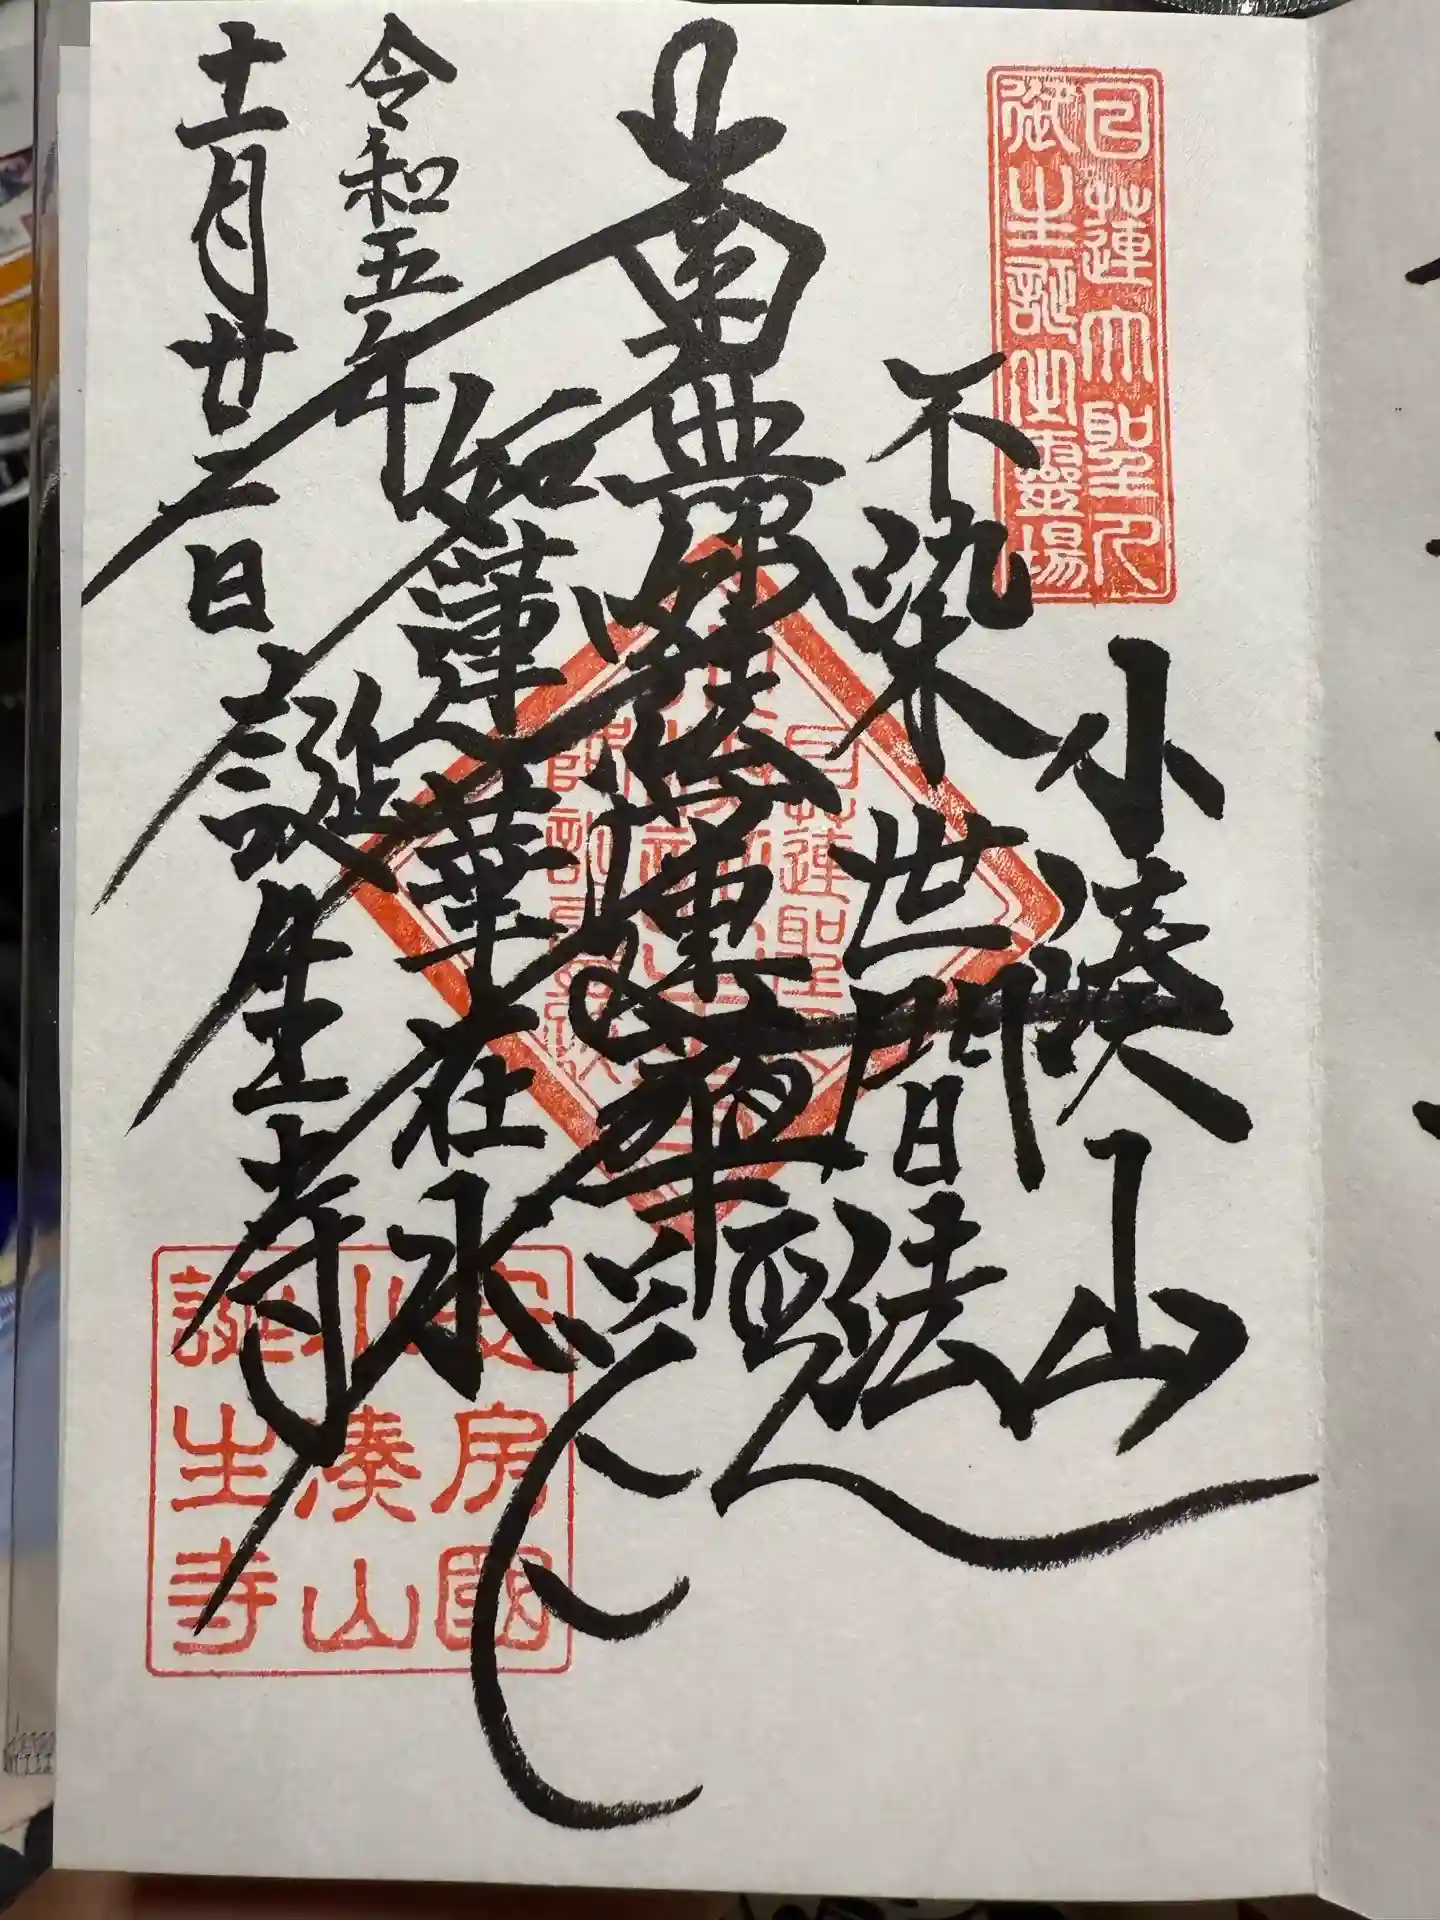 日蓮大聖人
御生誕之霊場
小湊山
不染世間法
南無妙法蓮華経
如蓮華在水
令和五年
十一月廿二日
誕生寺
安房國
小湊山
誕生寺